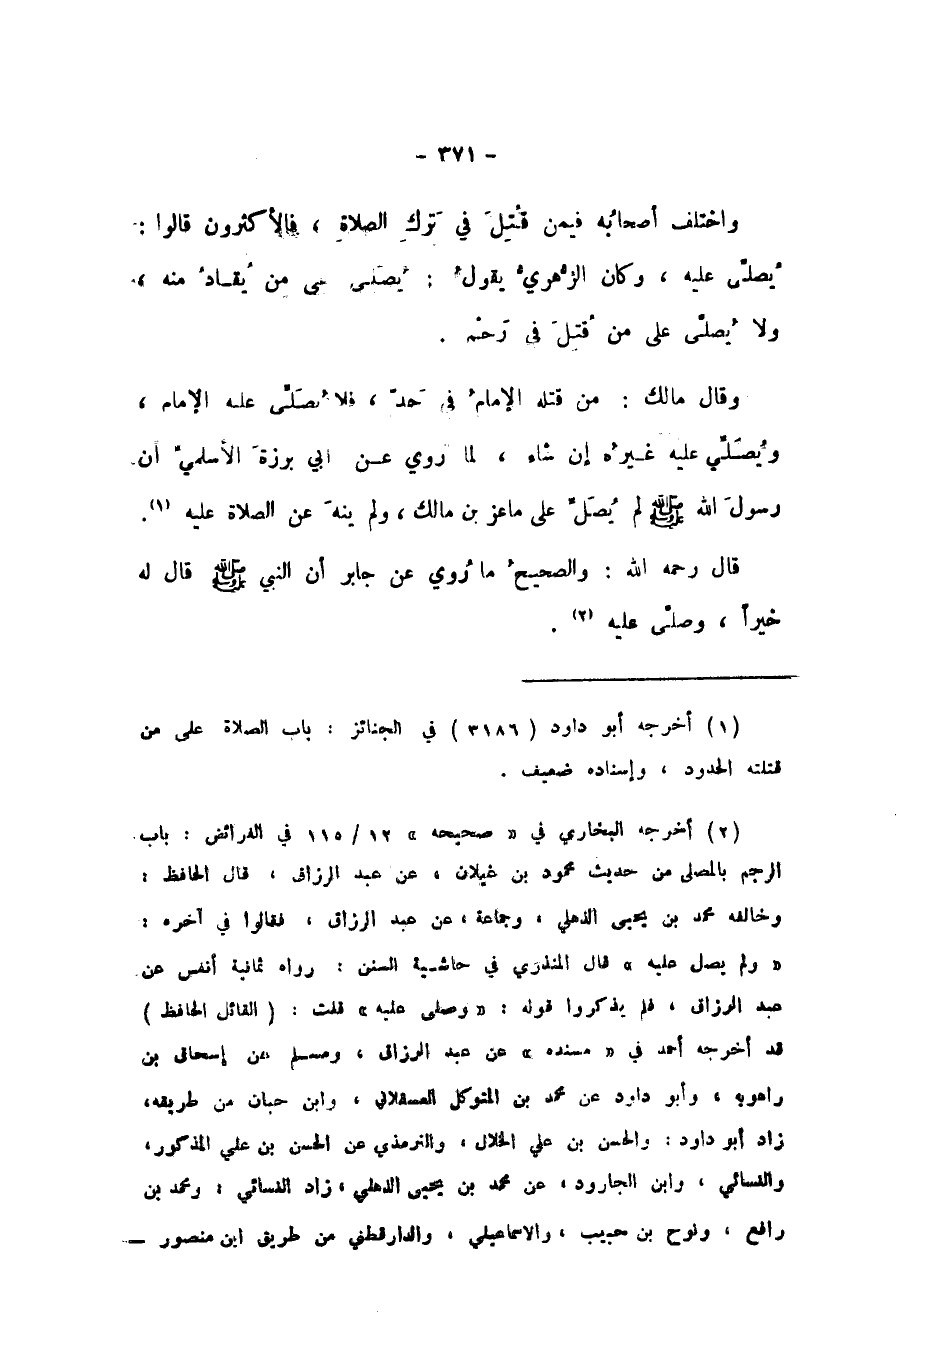 - ٣٧١ -
واختلف أصحابُه فيمن قُتِلَ في تَركِ الصلاةِ ، فالأكثرون قالوا :
يُصلَّى عليه ، وكان الزُّهويُّ يقولُ : يُصَلَّى على من يُقادُ منه ،
ولا يُصلَّى على من قُتِلَ في رَجْم .
وقال مالك : من قتله الإمامُ في حَدّ ، فلا يُصَلَّى عليه الإمام ،
ويُصَلَّي عليه غيرُه إن شاء ، لما رُوي عن ابي برزةَ الأسلميّ أن
رسولَ الله ﷺ لم يُصَلِّ على ماعز بن مالك ، ولم ينهَ عن الصلاة عليه (١).
قال رحمه الله : والصحيحُ ما رُوي عن جابر أن النبي ﷺ قال له
خيراً ، وصلَّى عليه (٢) .
(١) أخرجه أبو داود ( ٣١٨٦ ) في الجنائز : باب الصلاة على من
قتلته الحدود ، وإسناده ضعيف .
(٢) أخرجه البخاري في « صحيحه » ١٢ / ١١٥ في الفرائض : باب
الرجم بالمصلى من حديث محمود بن غيلان ، عن عبد الرزاق ، قال الحافظ :
وخالفه محمد بن يحيى الذهلي ، وجماعة ، عن عبد الرزاق ، فقالوا في آخره :
« ولم يصل عليه » قال المنذري في حاشية السنن : رواه ثمانية أنفس عن
عبد الرزاق ، فلم يذكروا قوله : « وصلى عليه » قلت : ( القائل الحافظ )
قد أخرجه أحمد في « مسنده » عن عبد الرزاق ، ومسلم عن إسحاق بن
راهويه ، وأبو داود عن محمد بن المتوكل العسقلاني ، وابن حبان من طريقه،
زاد أبو داود : والحسن بن علي الخلال ، والترمذي عن الحسن بن علي المذكور،
والنسائي ، وابن الجارود ، عن محمد بن يحيى الذهلي ، زاد النسائي : ومحمد بن
رافع ، ونوح بن حبيب ، والاسماعيلي ، والدارقطني من طريق ابن منصور —